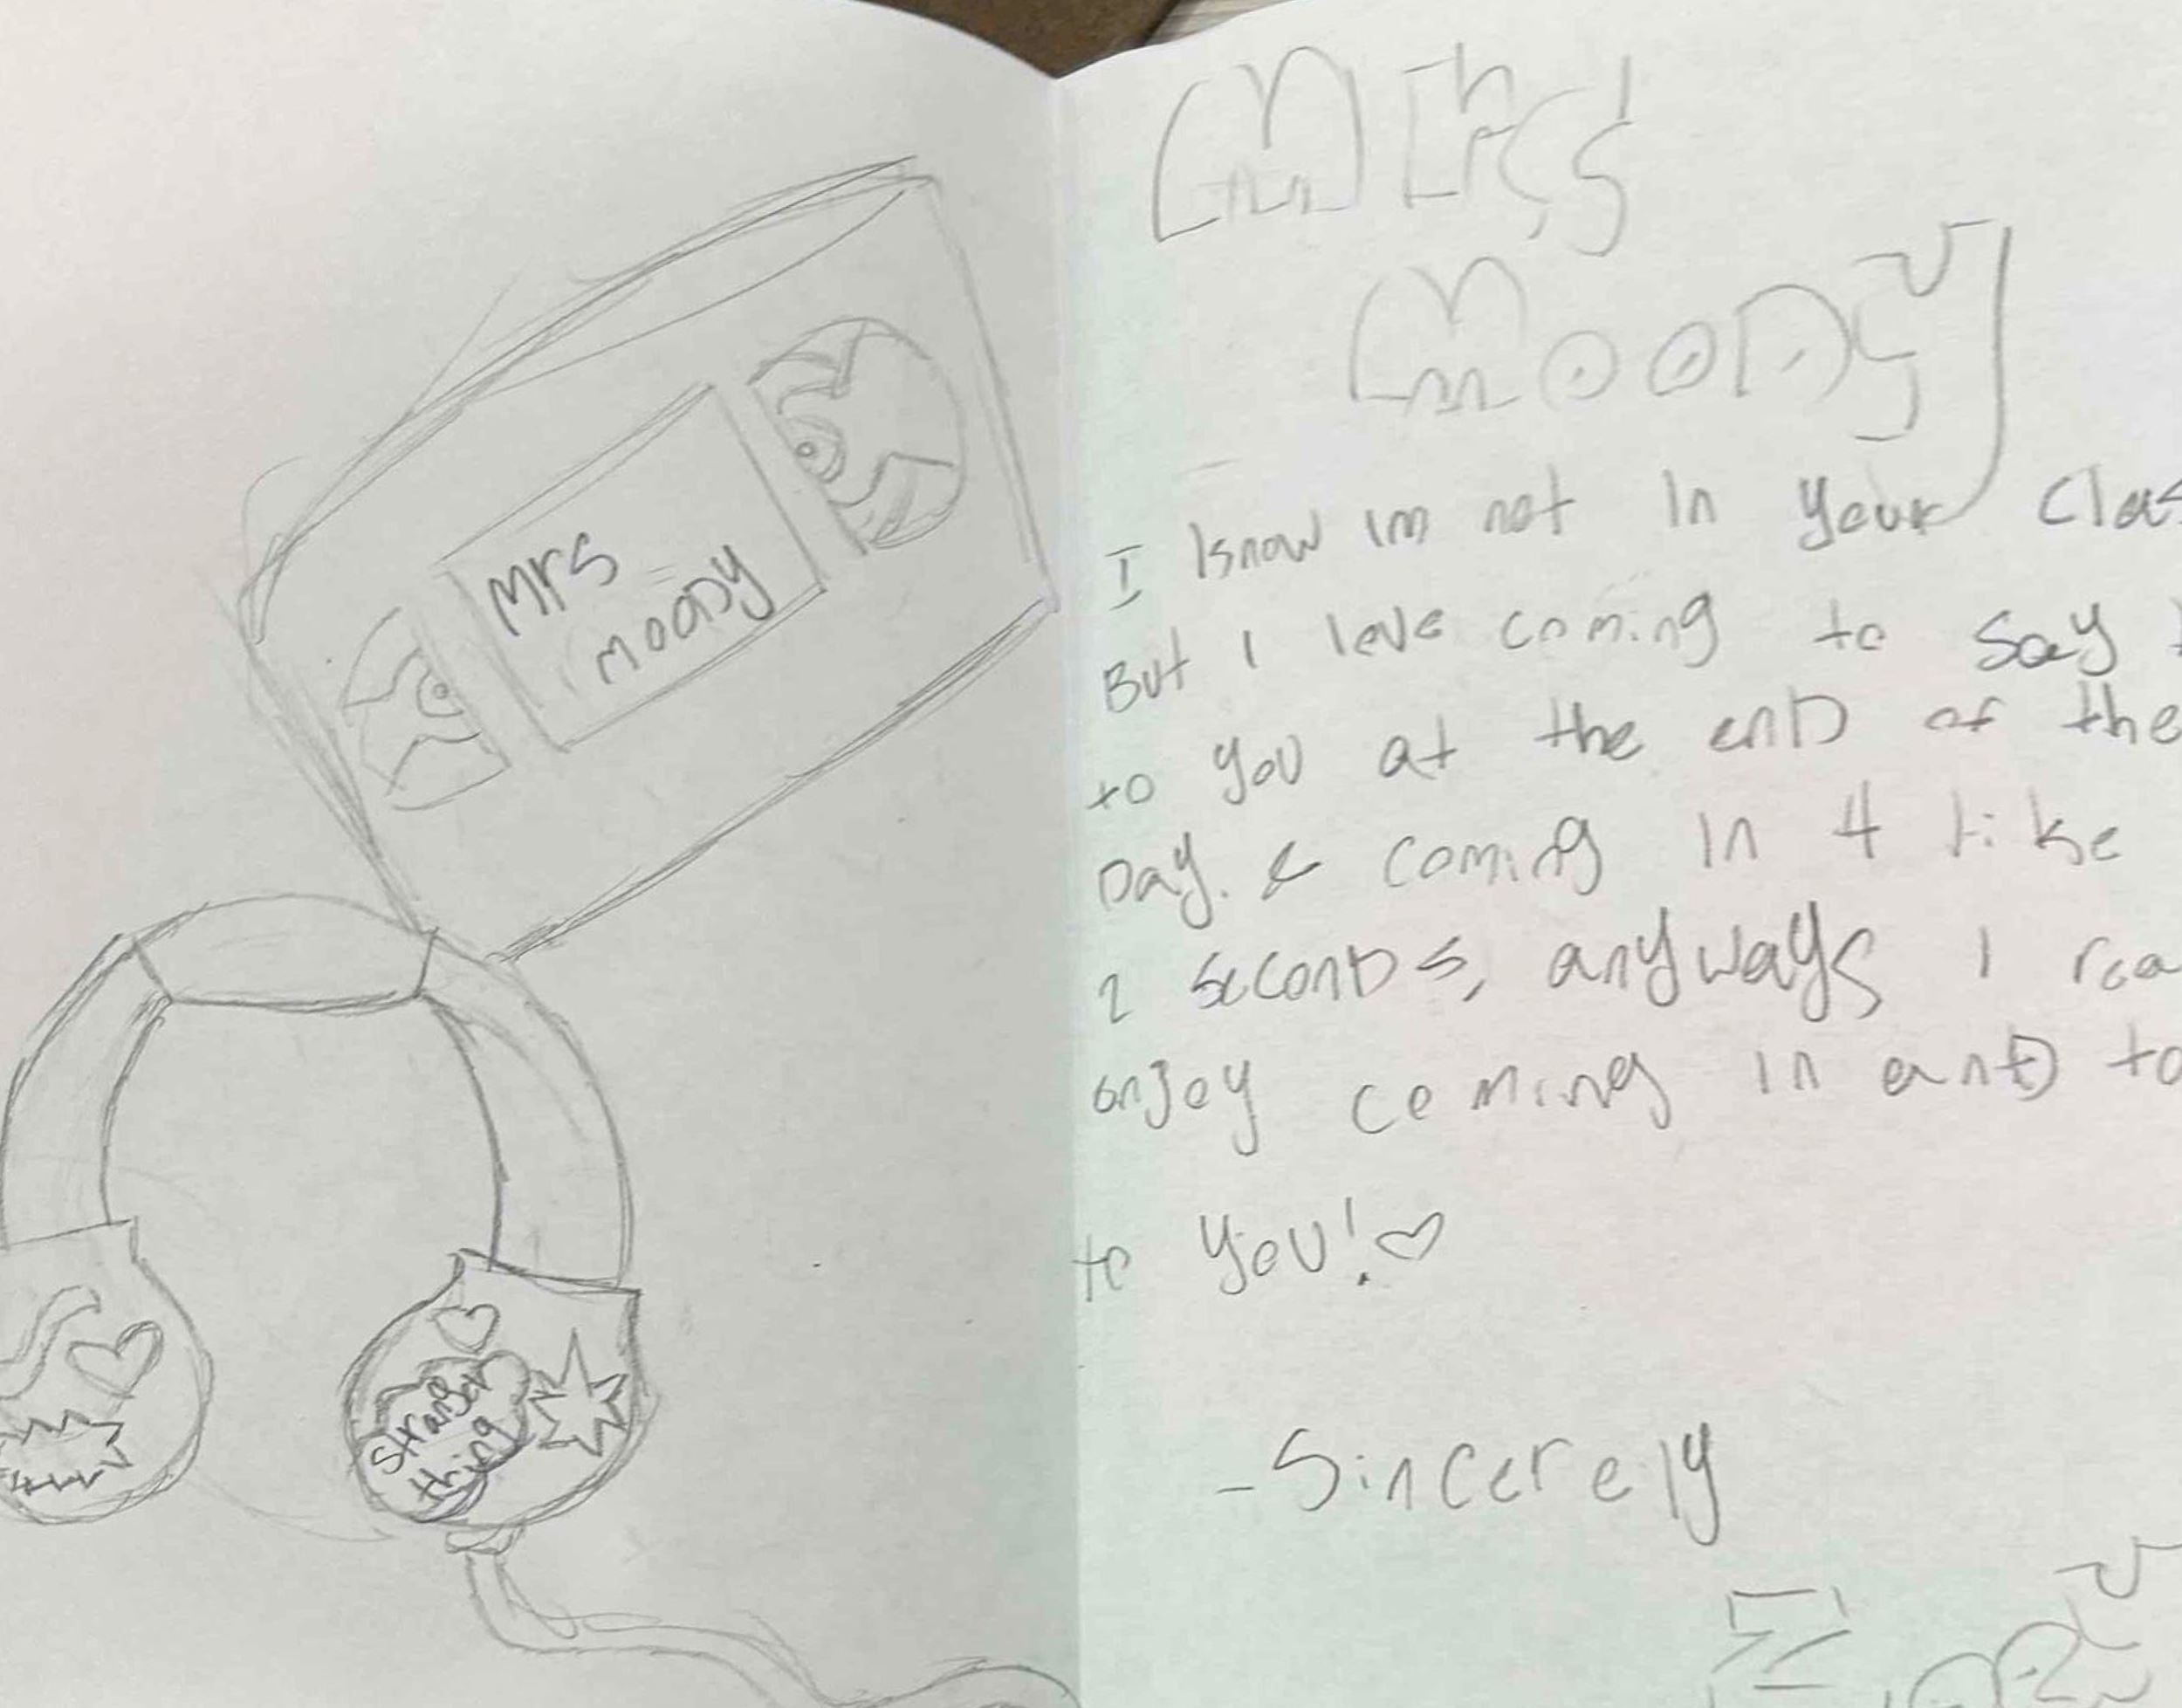 Mrs
moody
Stranger
thing
Mrs
Moody
I know im not in your Clas
But I love coming to say
to you at the enD of the
Day. & coming in 4 like
2 seconDs, anyways I rea
enjoy coming in anD ta
to you! ♡
- Sincerely